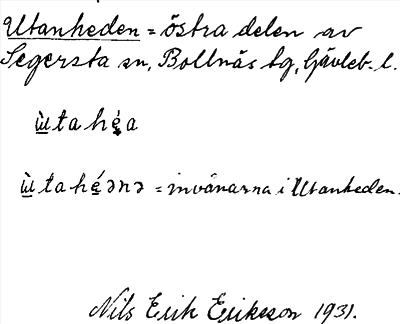 Utanheden = östra delen av
Segersta sn, Bollnäs tg, Gävleb. l.
ù̲tahé̲a
ù̲tahé̲ənə = invånarna i Utanheden.
Nils Erik Eriksson 1931.